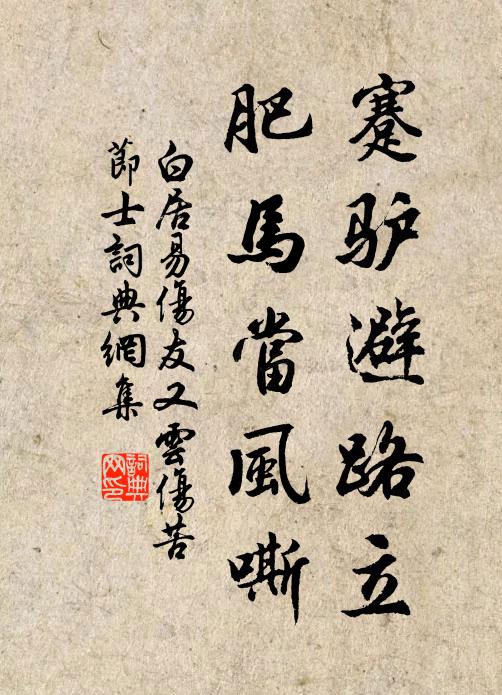 蹇驴避路立
肥馬當風嘶
白居易傷友又雲傷苦
節士詞典網集
詞典
网印